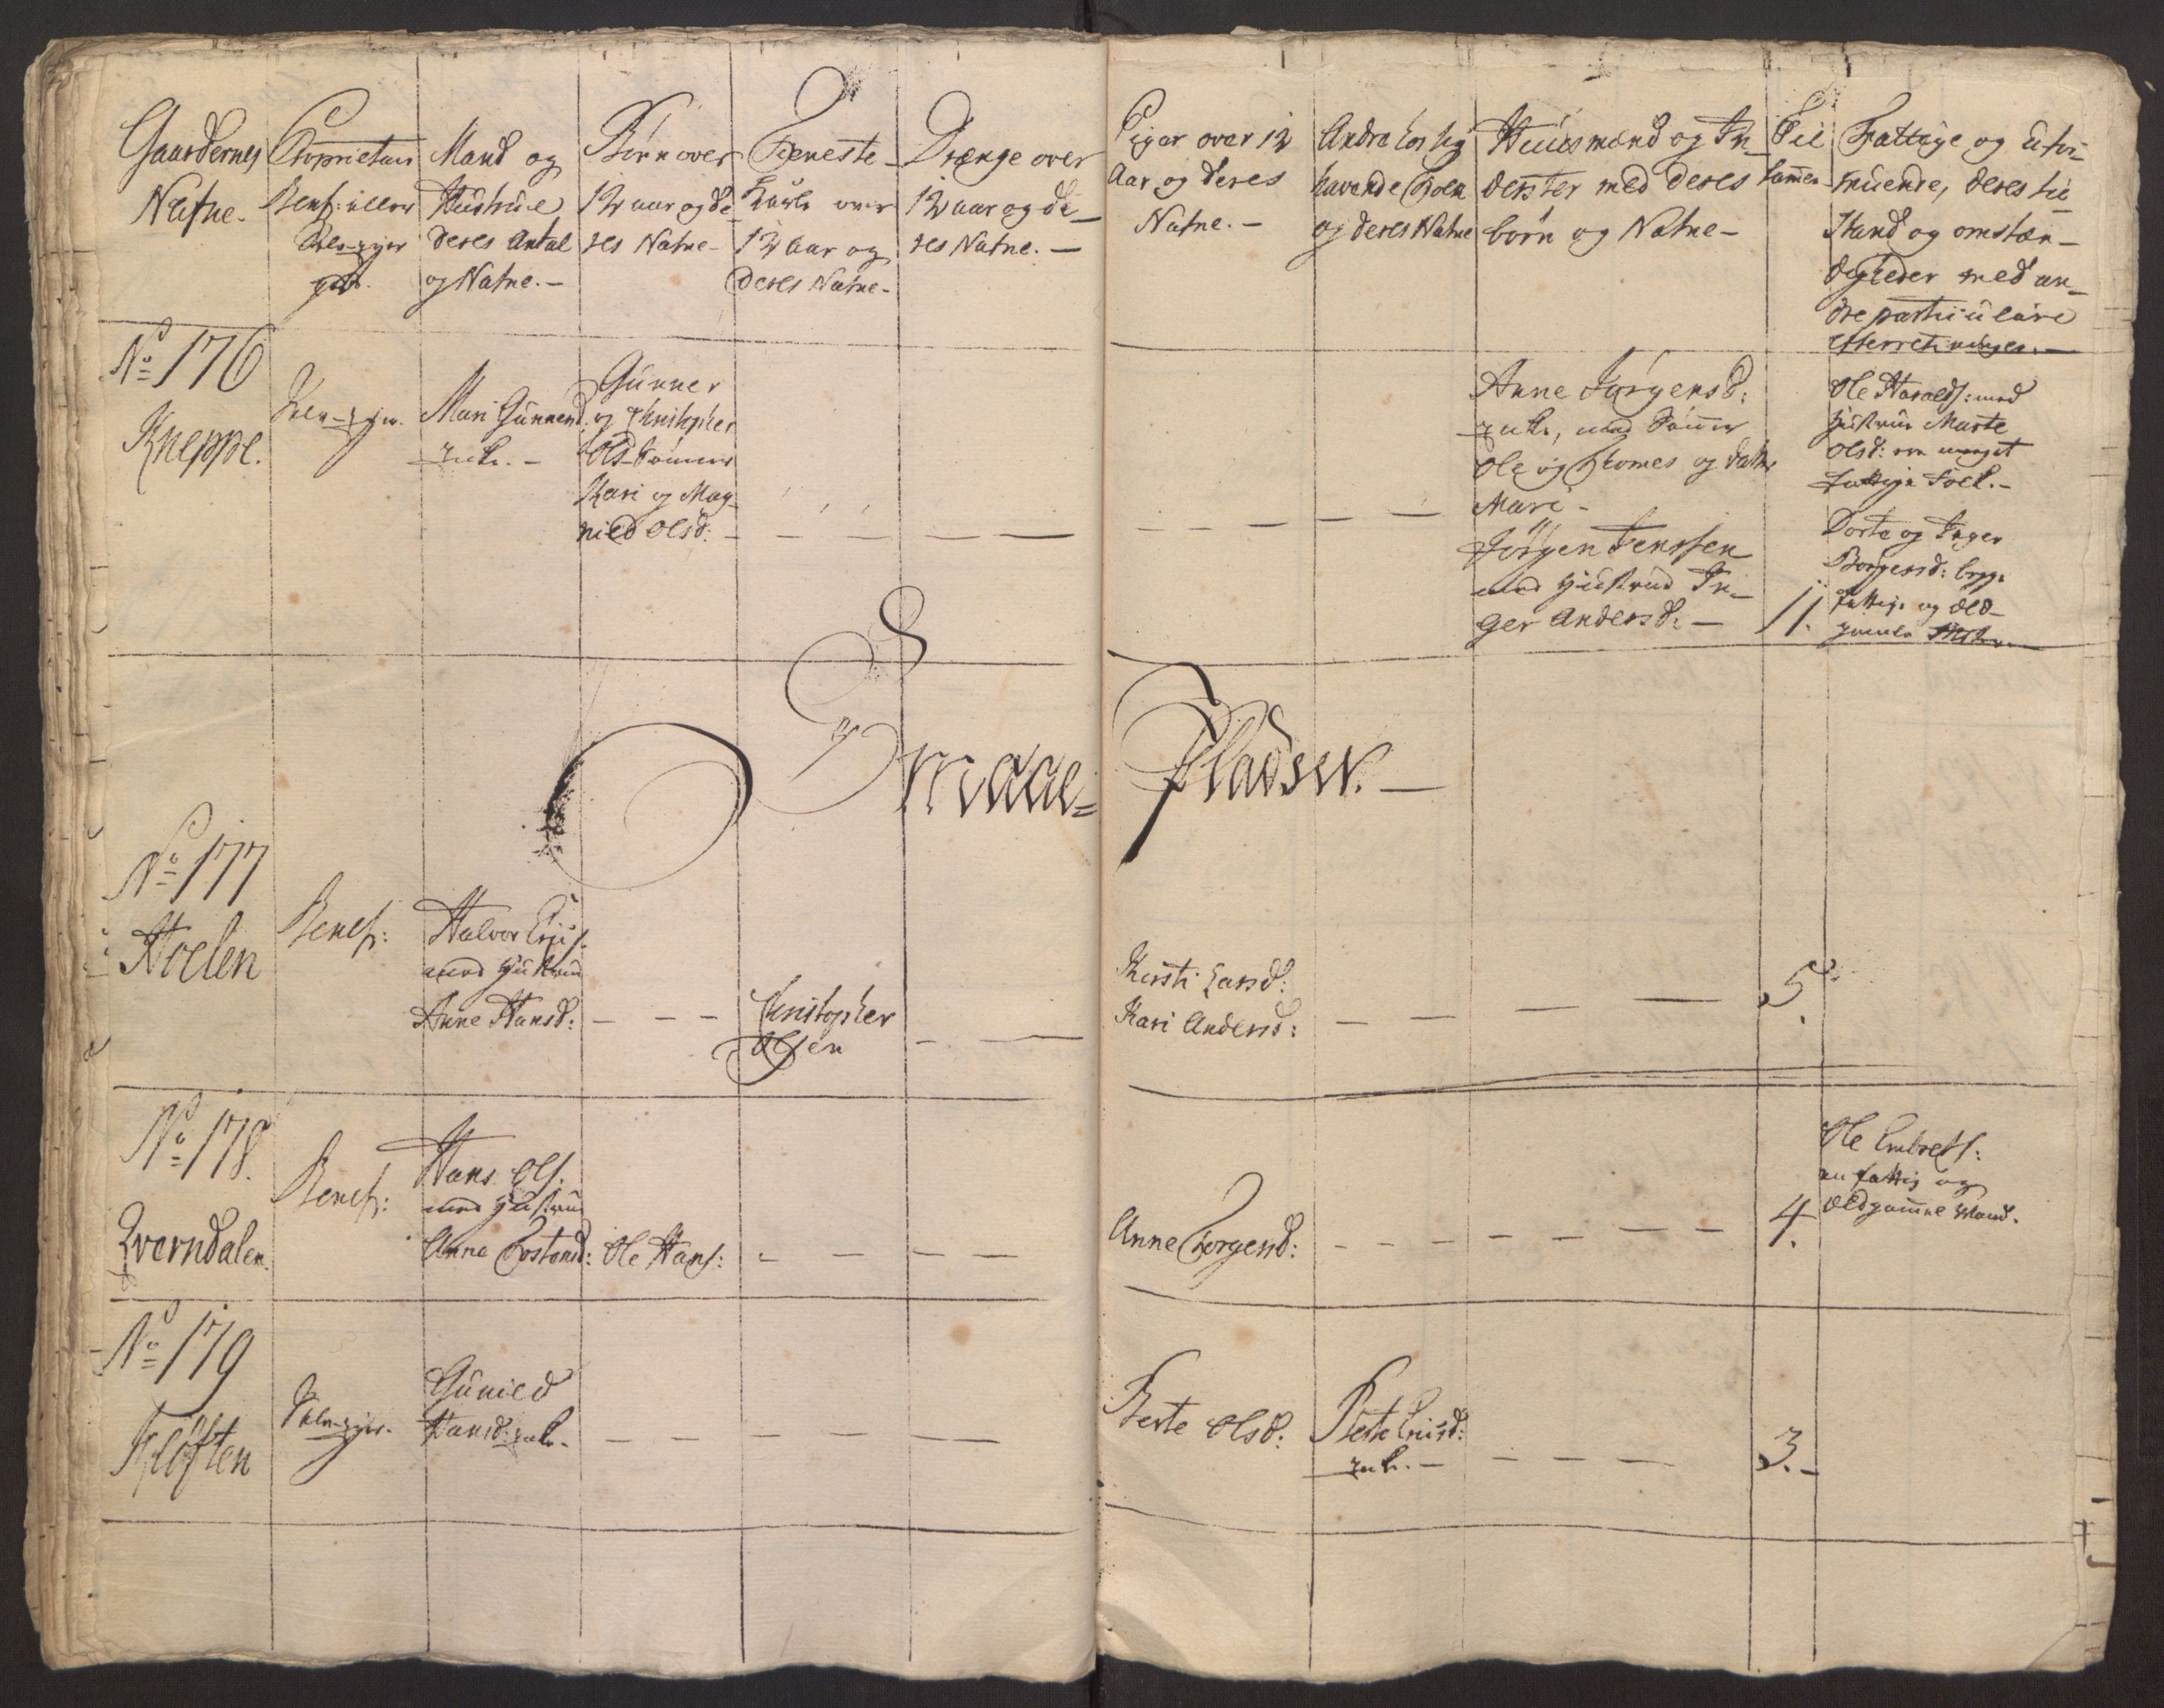 Gaardernes
Nafne.
Proprietair
Benf: eller
Selv-ejer
gods.
Mand og
Hustrue
deres Antal
og Nafne. -
Børn over
12 aar og de-
res Nafne -
Tieneste-
Karle over
12 Aar og
deres Nafne -
Drænge over
12 aar og de-
res Nafne. -
Piger over 12
Aar og deres
Nafne. -
Andre hos sig
havende Folk
og deres Nafne
Huusmænd og In-
derster med deres
børn og Nafne -
Til
sammen
Fattige og Ufor-
muende, deres til
stand og omstæn-
digheder med an-
dre particulaire
Efterretninger. -
No 176
Kneppe.
Selv-ejer.
Mari Gunnersd:
enke. -
Gunner
og Christopher
Ols-Sønner
Kari og Mag-
nild Olsd: -
Anne Jørgensd:
enke, med Sønner
Ole og Thomes og datter
Mari -
Jørgen Jenssen
med Hustrue In-
ger Andersd: -
11.
Ole Haralds: med
Hustrue Marte
Olsd: som meget
fattige Folk. -
Dorte og Inger
Borgersd: begge
fattige og Æld-
gamle
Smaae=
Pladser. -
No 177
Hoelen
Benef:
Halvor
med Hustrue
Anne Hansd: -
Christopher
Olsen
Kirsti Larsd:
Kari Andersd:
5.
No 178.
Qverndalen.
Benef:
Hans Ols:
med Hustrue
Anne Tostensd:
Ole Hans:
Anne Torgersd:
4.
Ole Embrets:
en fattig og
Ældgammel Mand.
No 179
Kløften
Selv-ejer.
Gunild
Hansd: enke.
Berte Olsd:
enke. -
3. -